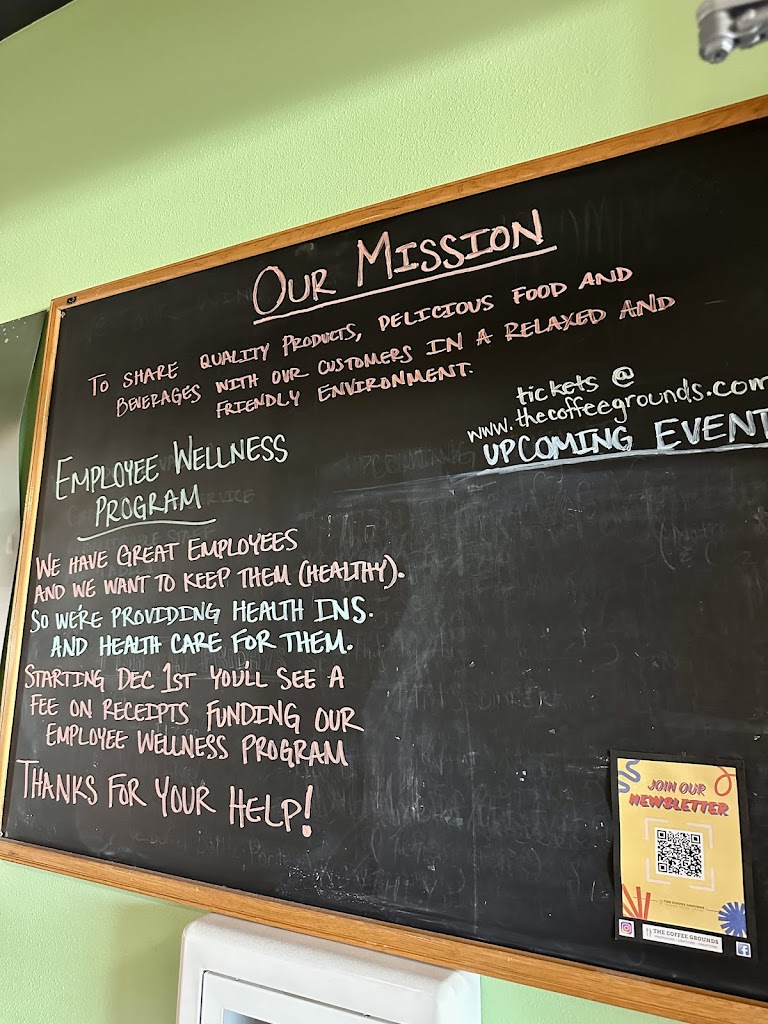 OUR MISSION
TO SHARE QUALITY PRODUCTS, DELICIOUS FOOD AND
BEVERAGES WITH OUR CUSTOMERS IN A RELAXED AND
FRIENDLY ENVIRONMENT.
tickets @
www.thecoffeegrounds.com
UPCOMING EVENT
EMPLOYEE WELLNESS
PROGRAM
WE HAVE GREAT EMPLOYEES
AND WE WANT TO KEEP THEM (HEALTHY).
SO WE'RE PROVIDING HEALTH INS.
AND HEALTH CARE FOR THEM.
STARTING DEC 1ST YOU'LL SEE A
FEE ON RECEIPTS FUNDING OUR
EMPLOYEE WELLNESS PROGRAM
THANKS FOR YOUR HELP!
JOIN OUR
NEWSLETTER
THE COFFEE GROUNDS